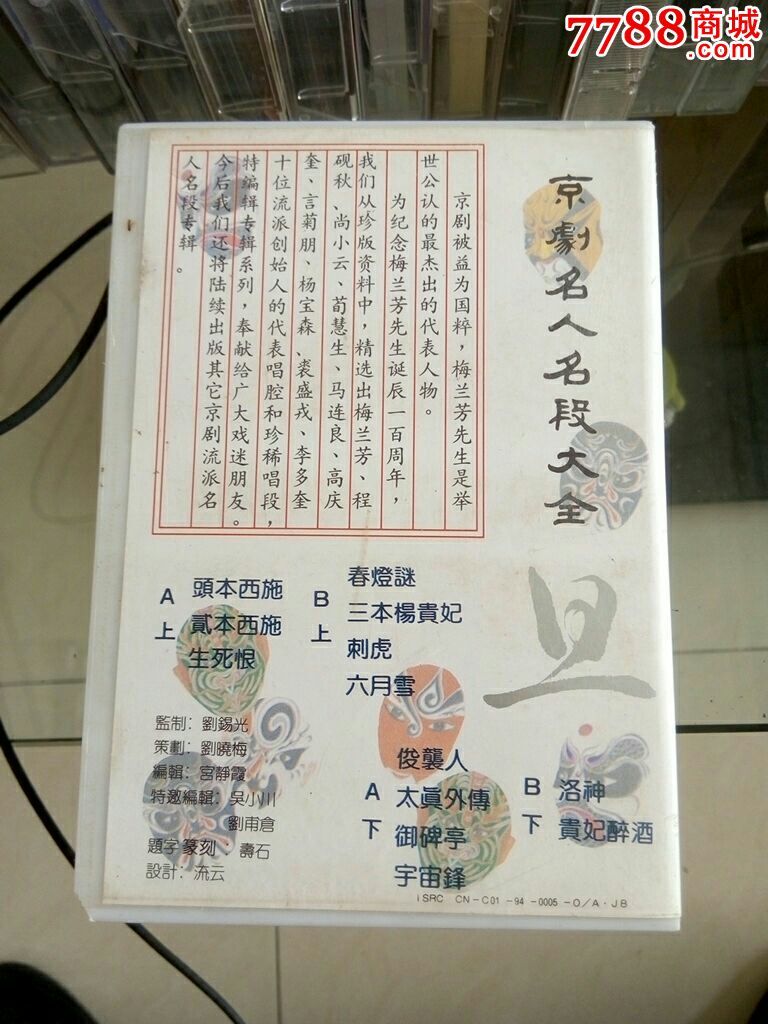 7788商城
.com
京劇名人名段大全
京剧被益为国粹，梅兰芳先生是举
世公认的最杰出的代表人物。
为纪念梅兰芳先生诞辰一百周年，
我们从珍版资料中，精选出梅兰芳、程
砚秋、尚小云、荀慧生、马连良、高庆
奎、言菊朋、杨宝森、裘盛戎、李多奎
十位流派创始人的代表唱腔和珍稀唱段，
特编辑专辑系列，奉献给广大戏迷朋友。
今后我们还将陆续出版其它京剧流派名
人名段专辑。
旦
A上
頭本西施
貳本西施
生死恨
B上
春燈謎
三本楊貴妃
刺虎
六月雪
監制：劉錫光
策劃：劉曉梅
編輯：宮靜霞
特邀編輯：吳小川
劉甫倉
題字篆刻：壽石
設計：流云
A下
俊襲人
太眞外傳
御碑亭
宇宙鋒
B下
洛神
貴妃醉酒
ISRC CN-C01-94-0005-0/A·J8